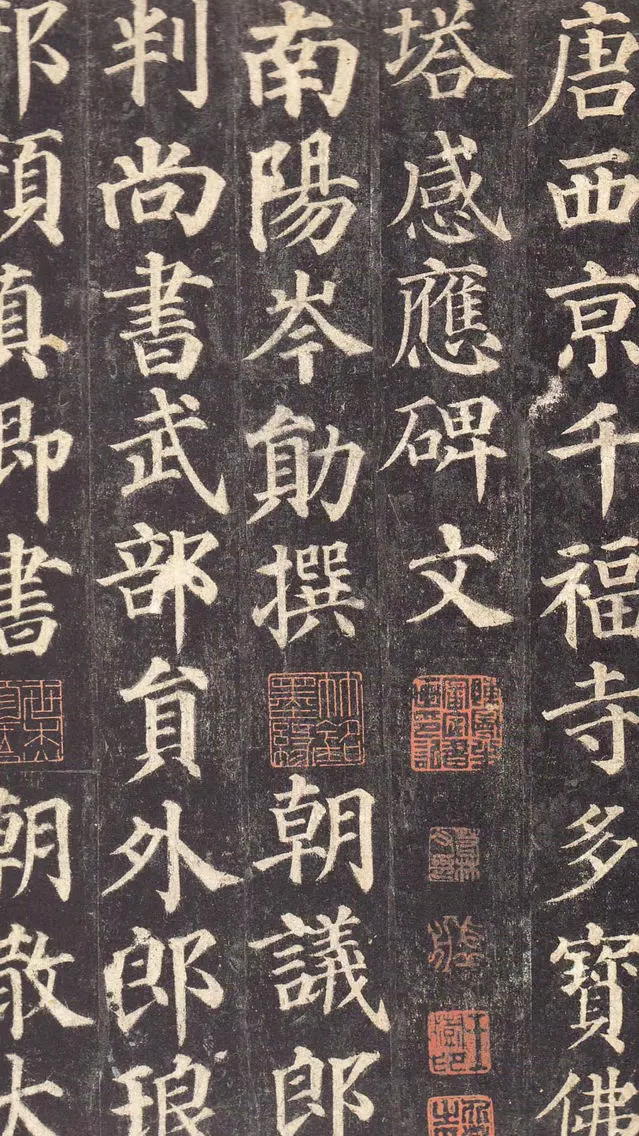 唐西京千福寺多寶佛
塔感應碑文
南陽岑勛撰 朝議郎
判尚書武部員外郎琅
邪顏真卿書 朝散大